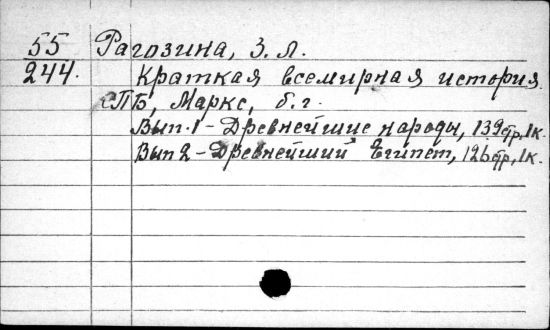 55 Рагозина, З. Л.
244. Краткая всемирная история.
СПБ, Маркс, б. г.
Вып. 1 - Древнейшие народы, 139 стр., 1к.
Вып 2 - Древнейший Египет, 126 стр., 1к.